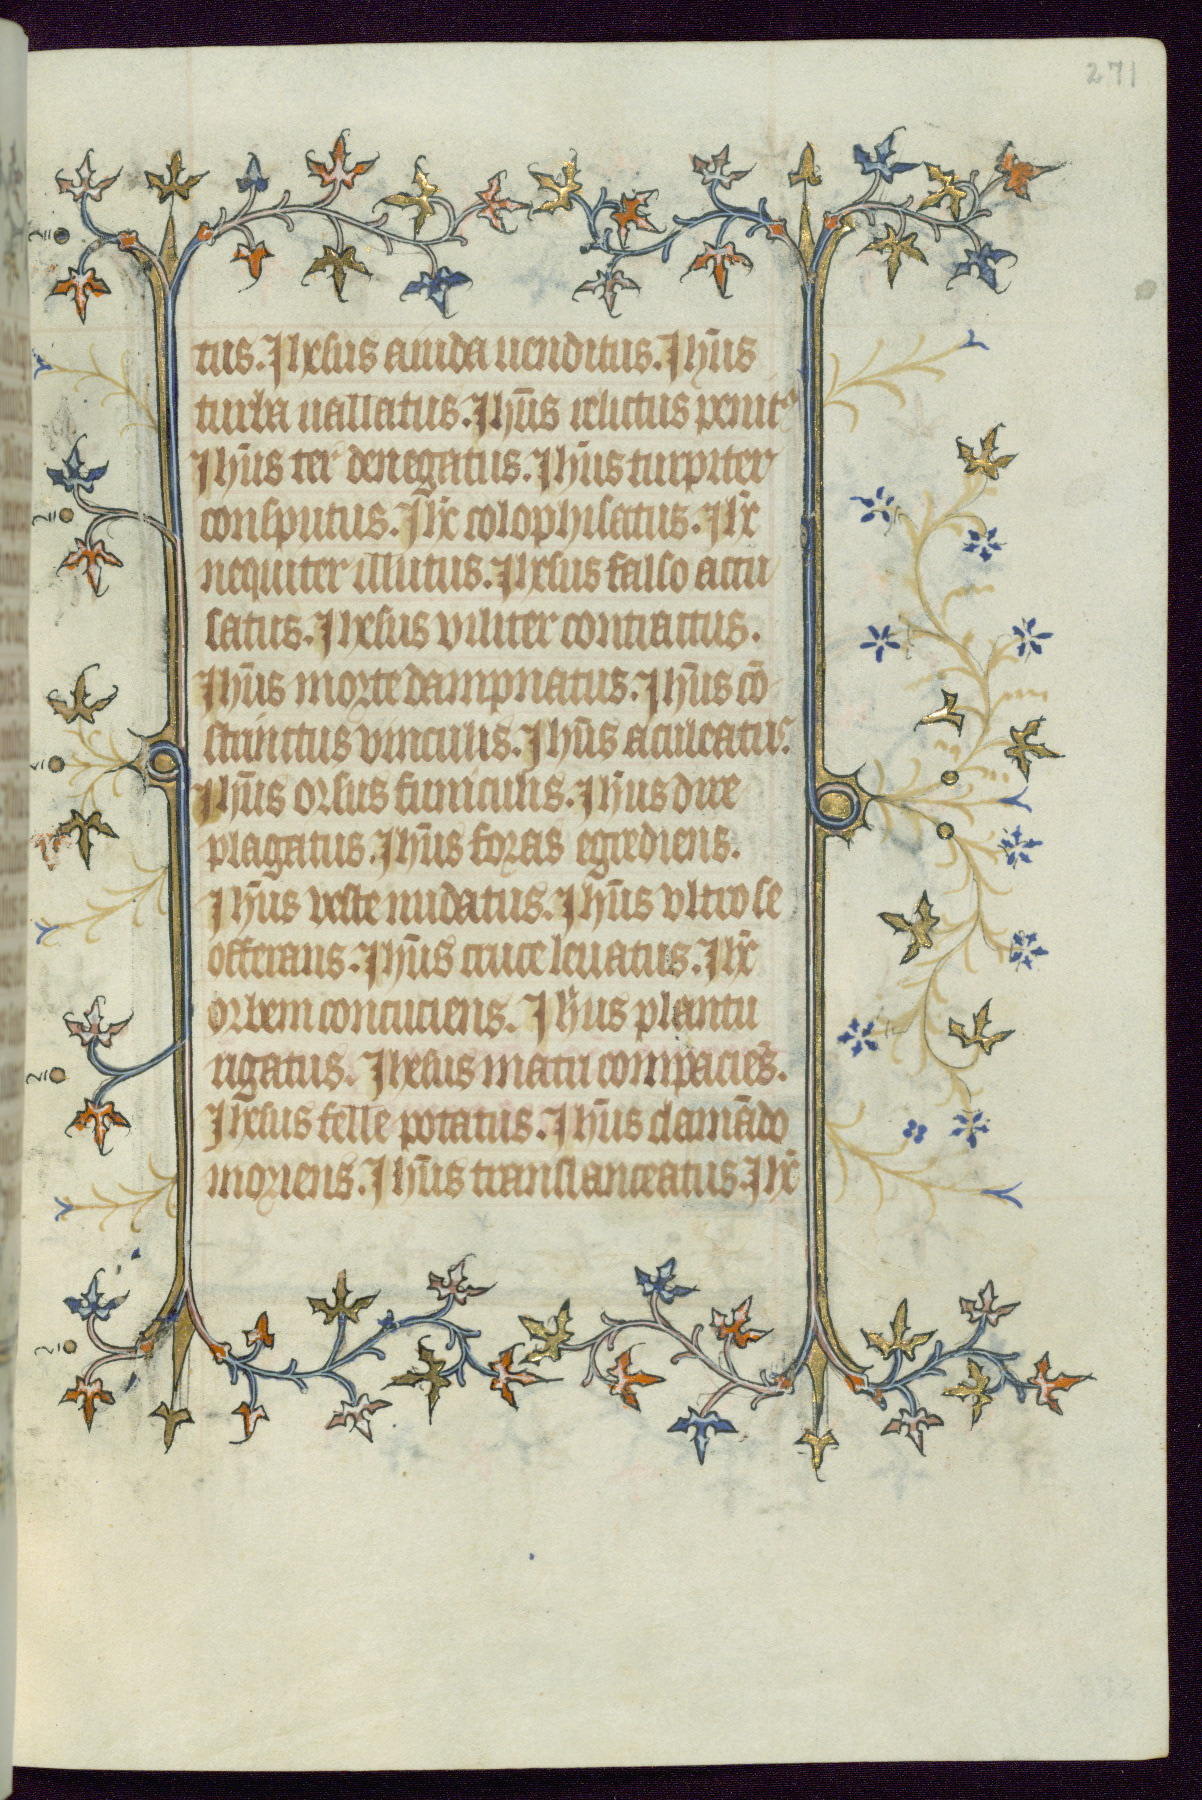 271
tus. Ihesus a iuda uenditus. Ihūs
turba uallatus. Ihūs relictus penit᷒
Ihūs ter denegatus. Ihūs turpiter
consputus. Ihc̄ colophisatus. Ihc̄
nequiter illutus. Ihesus falso accu
satus. Ihesus viliter contractus.
Ihūs morte dampnatus. Ihūs cō
strinctus vinculis. Ihūs aculeatus.
Ihūs orsus funiculis. Ihūs dire
plagatus. Ihūs foras egrediens.
Ihūs veste nudatus. Ihūs vltro se
offerans. Ihūs cruce leuatus. Ihc̄
orbem concuciens. Ihūs planctu
rigatus. Ihesus matri compaciēs.
Ihesus felle potatus. Ihūs clamādo
moriens. Ihūs translanceatus. Ihc̄